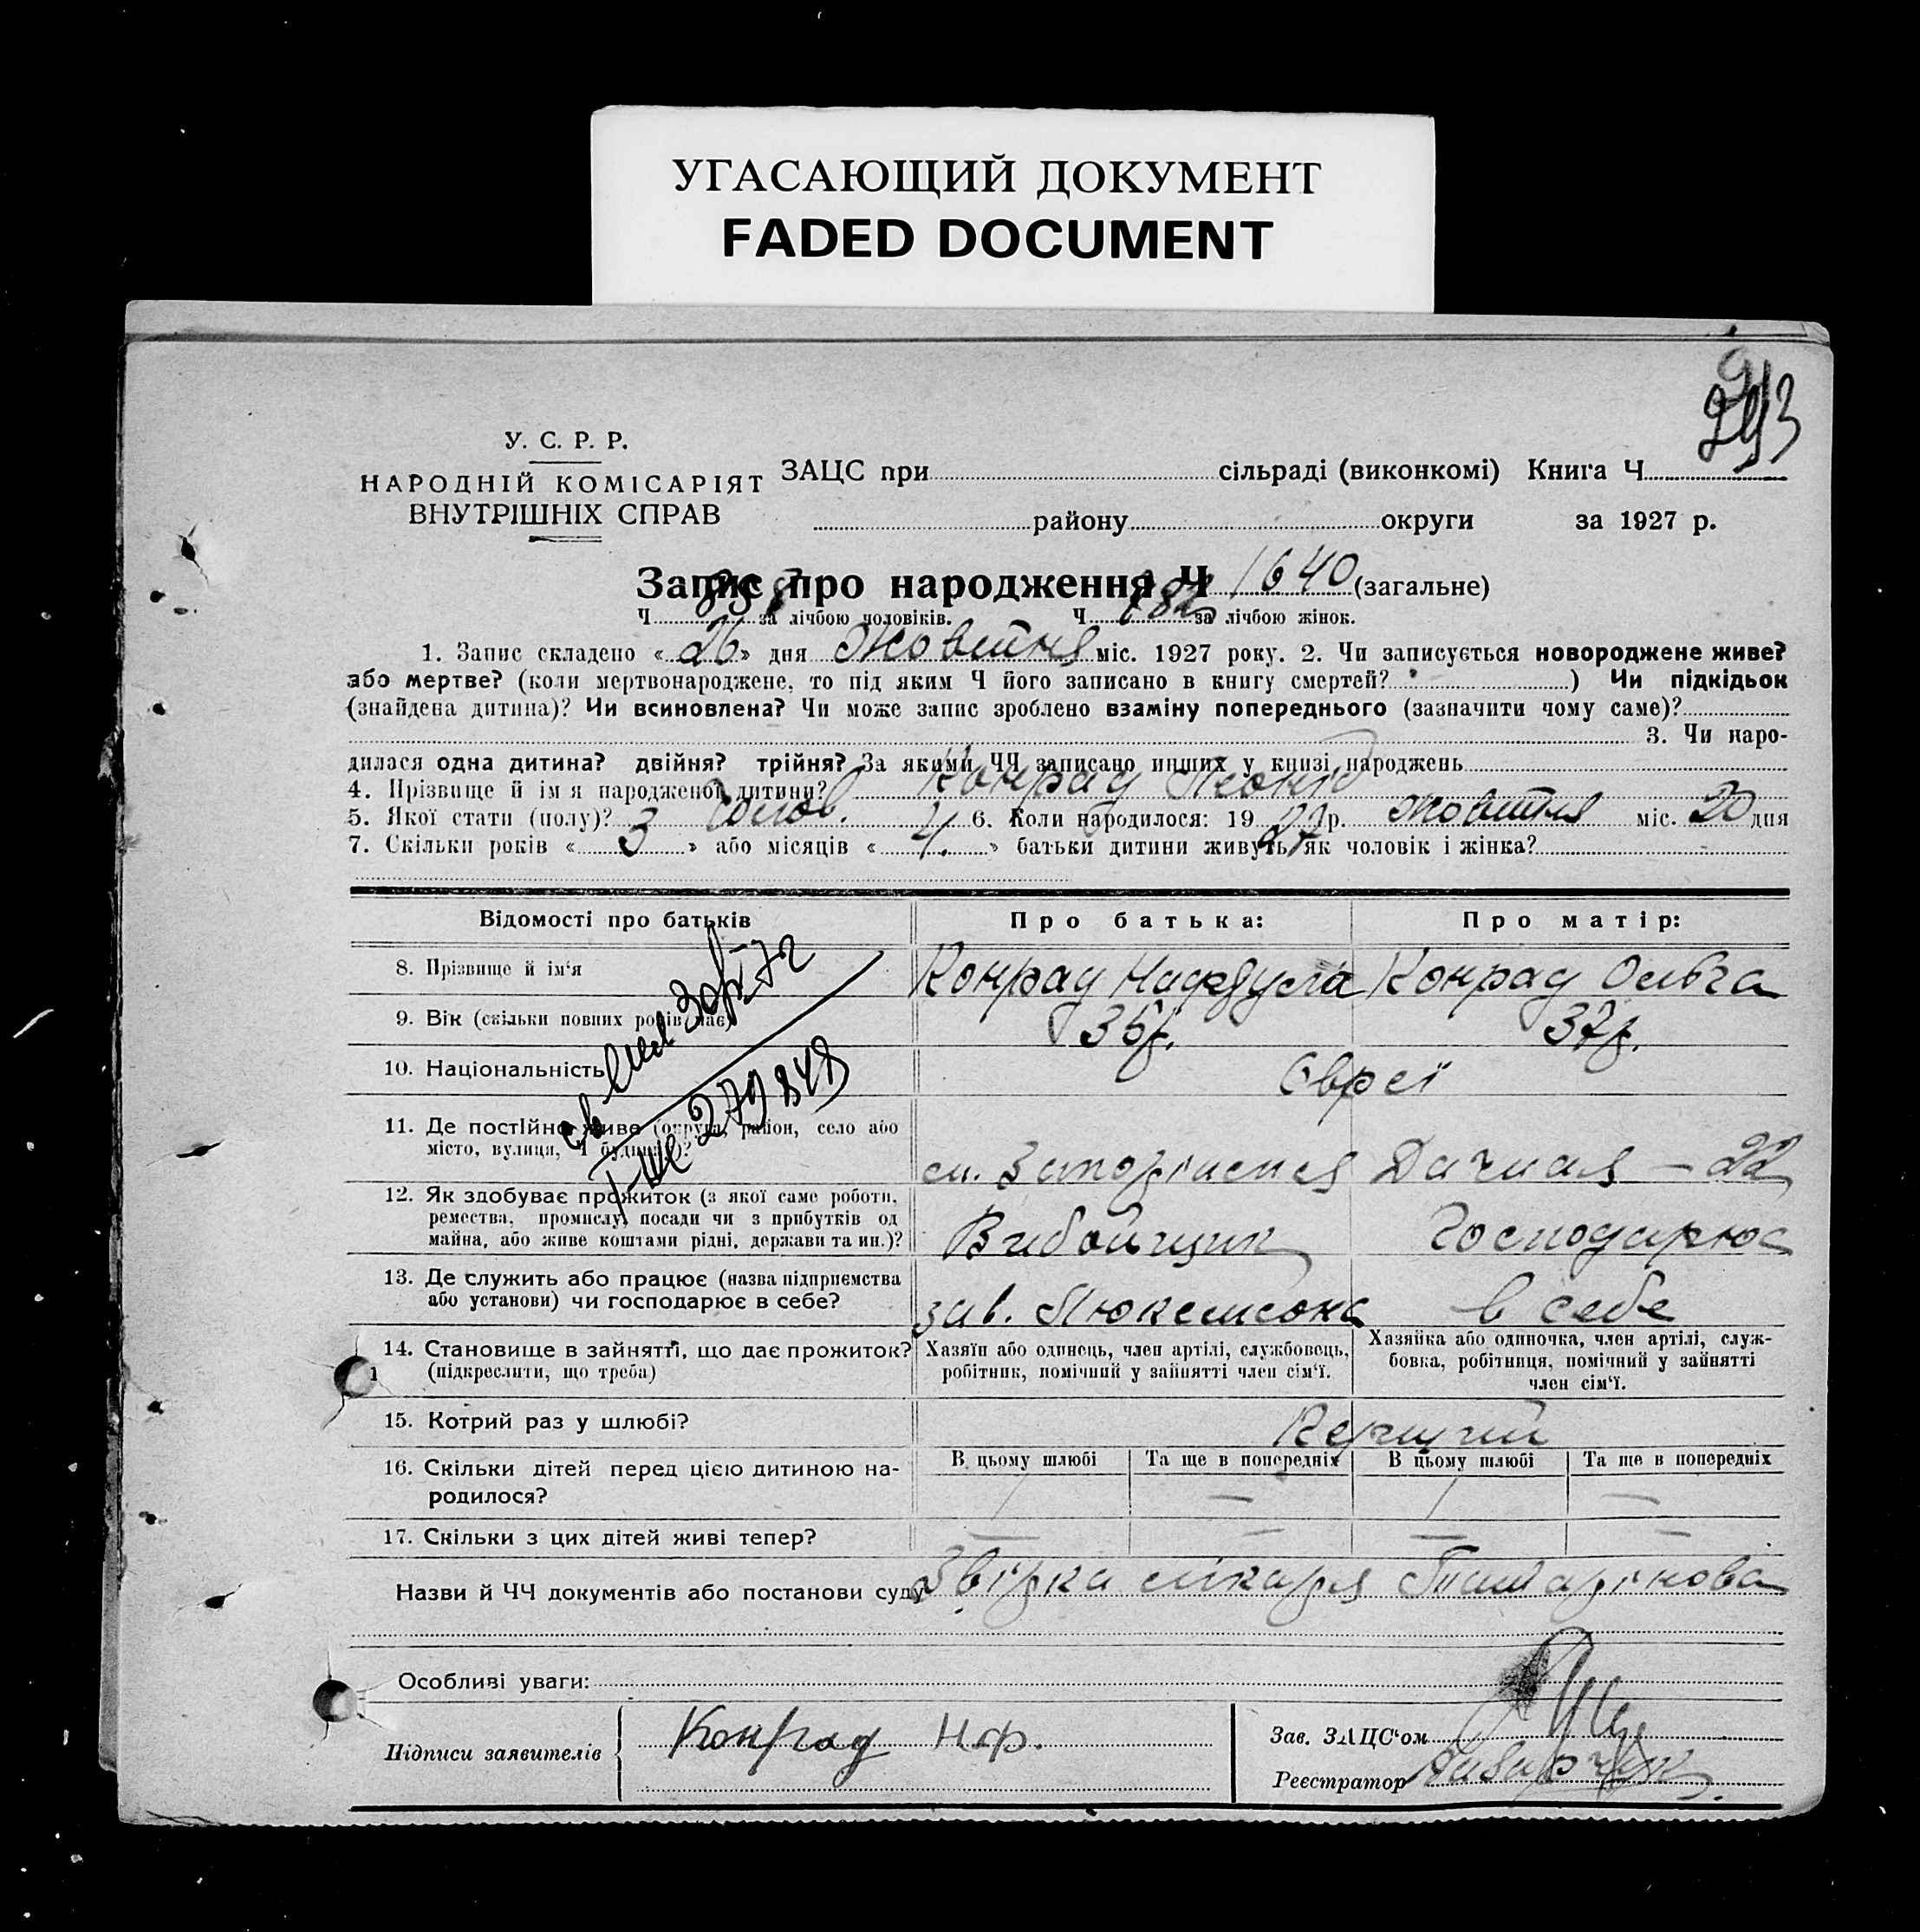 УГАСАЮЩИЙ ДОКУМЕНТ
FADED DOCUMENT
293
У. С. Р. Р.
НАРОДНІЙ КОМІСАРІЯТ
ВНУТРІШНІХ СПРАВ
ЗАЦС при сільраді (виконкомі) Книга Ч.
району округи за 1927 р.
Запис про народження Ч 1640 (загальне)
Ч 858 за лічбою чоловіків. Ч 782 за лічбою жінок.
1. Запис складено « 26 » дня Жовтня міс. 1927 року. 2. Чи записується новороджене живе?
або мертве? (коли мертвонароджене, то під яким Ч його записано в книгу смертей? ) Чи підкідьок
(знайдена дитина)? Чи всиновлена? Чи може запис зроблено взаміну попереднього (зазначити чому саме)?
3. Чи наро-
дилася одна дитина? двійня? трійня? За якими ЧЧ записано инших у книзі народжень
4. Прізвище й ім я народженої дитини? Конрад
5. Якої стати (полу)? Чолов. 6. Коли народилося: 1927 р. Жовтня міс. 20 дня
7. Скільки років « 3 » або місяців « 4. » батьки дитини живуть як чоловік і жінка?
Відомості про батьків Про батька: Про матір:
8. Прізвище й ім'я Конрад Конрад Ольга
9. Вік (скільки повних років має) 35р. 37р.
10. Національність Євреї
11. Де постійно живе (округа, район, село або
місто, вулиця, Ч будинку)?
м. Запоріжжя Дачная — 22
12. Як здобуває прожиток (з якої саме роботи,
ремества, промислу, посади чи з прибутків од
майна, або живе коштами рідні, держави та ин.)?
Вибойщик Господарює
13. Де служить або працює (назва підприємства
або установи) чи господарює в себе?
зав. в себе
I-ше 279848
14. Становище в зайнятті, що дає прожиток?
(підкреслити, що треба)
Хазяїн або одинець, член артілі, службовець,
робітник, помічний у зайнятті член сім'ї.
Хазяйка або одиночка, член артілі, служ-
бовка, робітниця, помічний у зайнятті
член сім'ї.
15. Котрий раз у шлюбі? Перший
16. Скільки дітей перед цією дитиною на-
родилося?
В цьому шлюбі Та ще в попередніх В цьому шлюбі Та ще в попередніх
1 — 1 —
17. Скільки з цих дітей живі тепер? — — — —
Назви й ЧЧ документів або постанови суду Звірка лікаря
Особливі уваги:
Підписи заявителів Конрад Н.Ф.
Зав. ЗАЦС'ом
Реєстратор